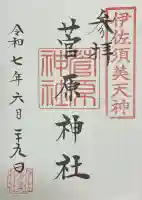 伊佐須美天神
参拝
菅原神社
菅原
神社
令和七年六月二十九日